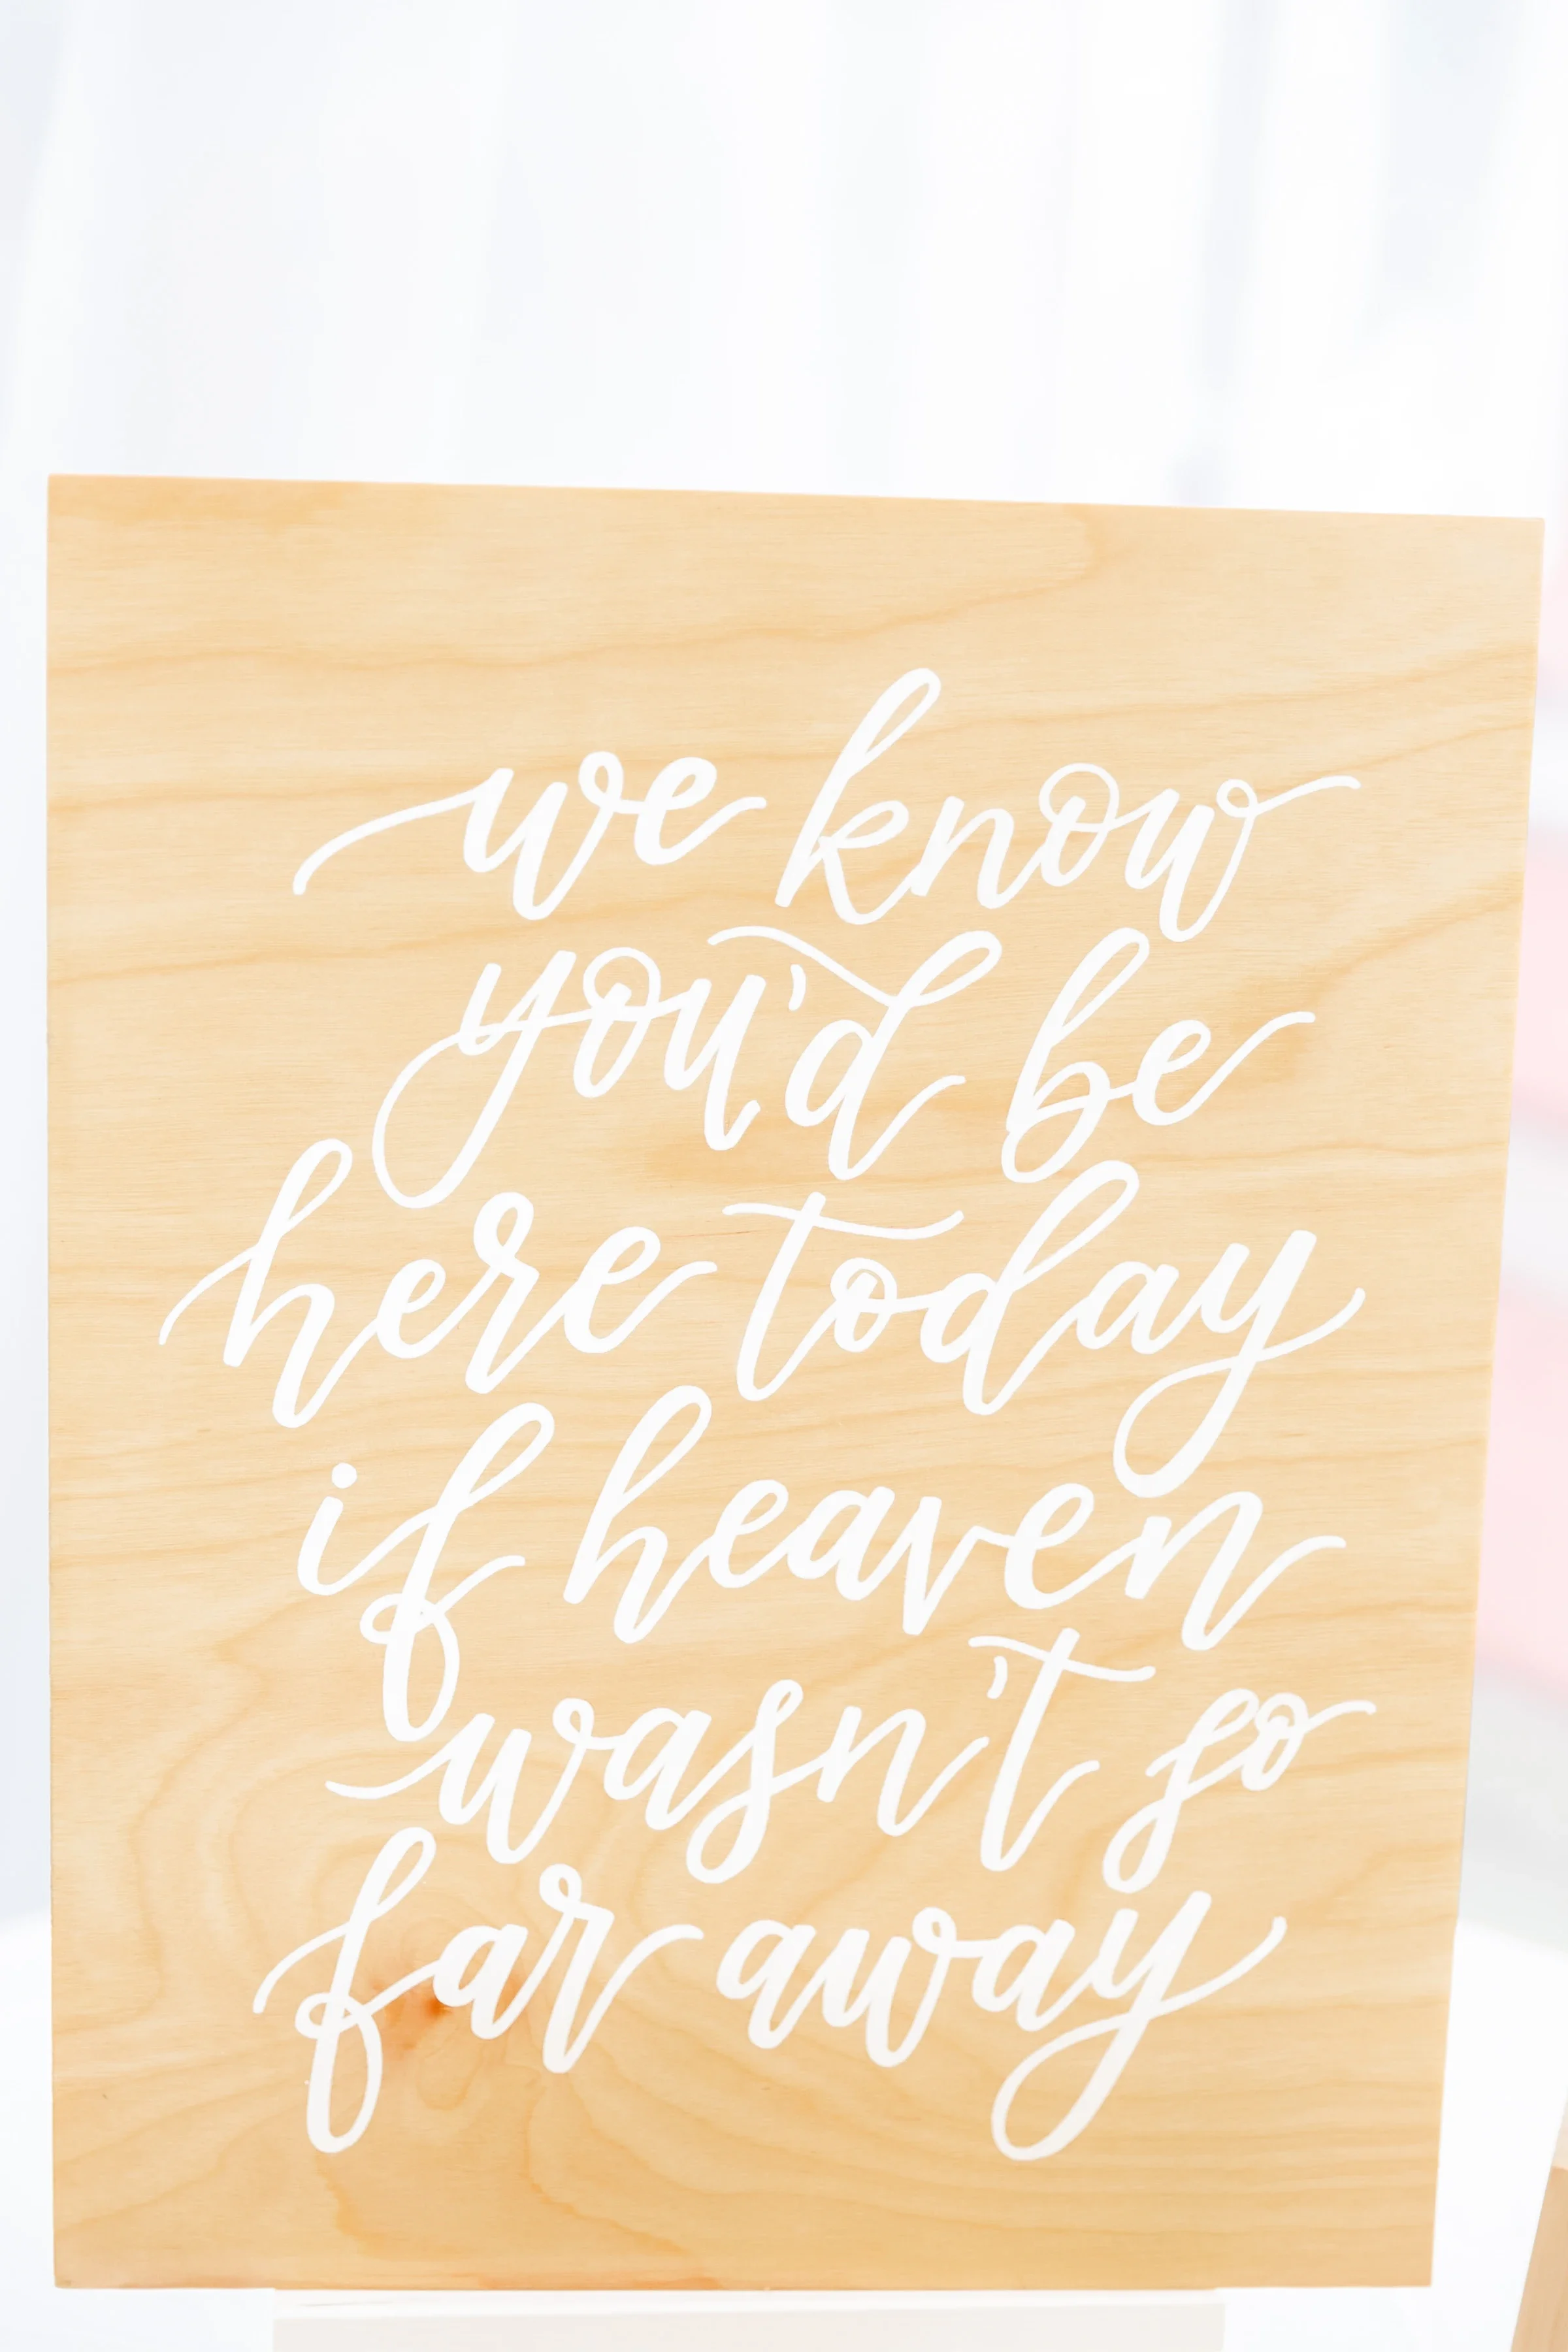 we know
you'd be
here today
if heaven
wasn't so
far away